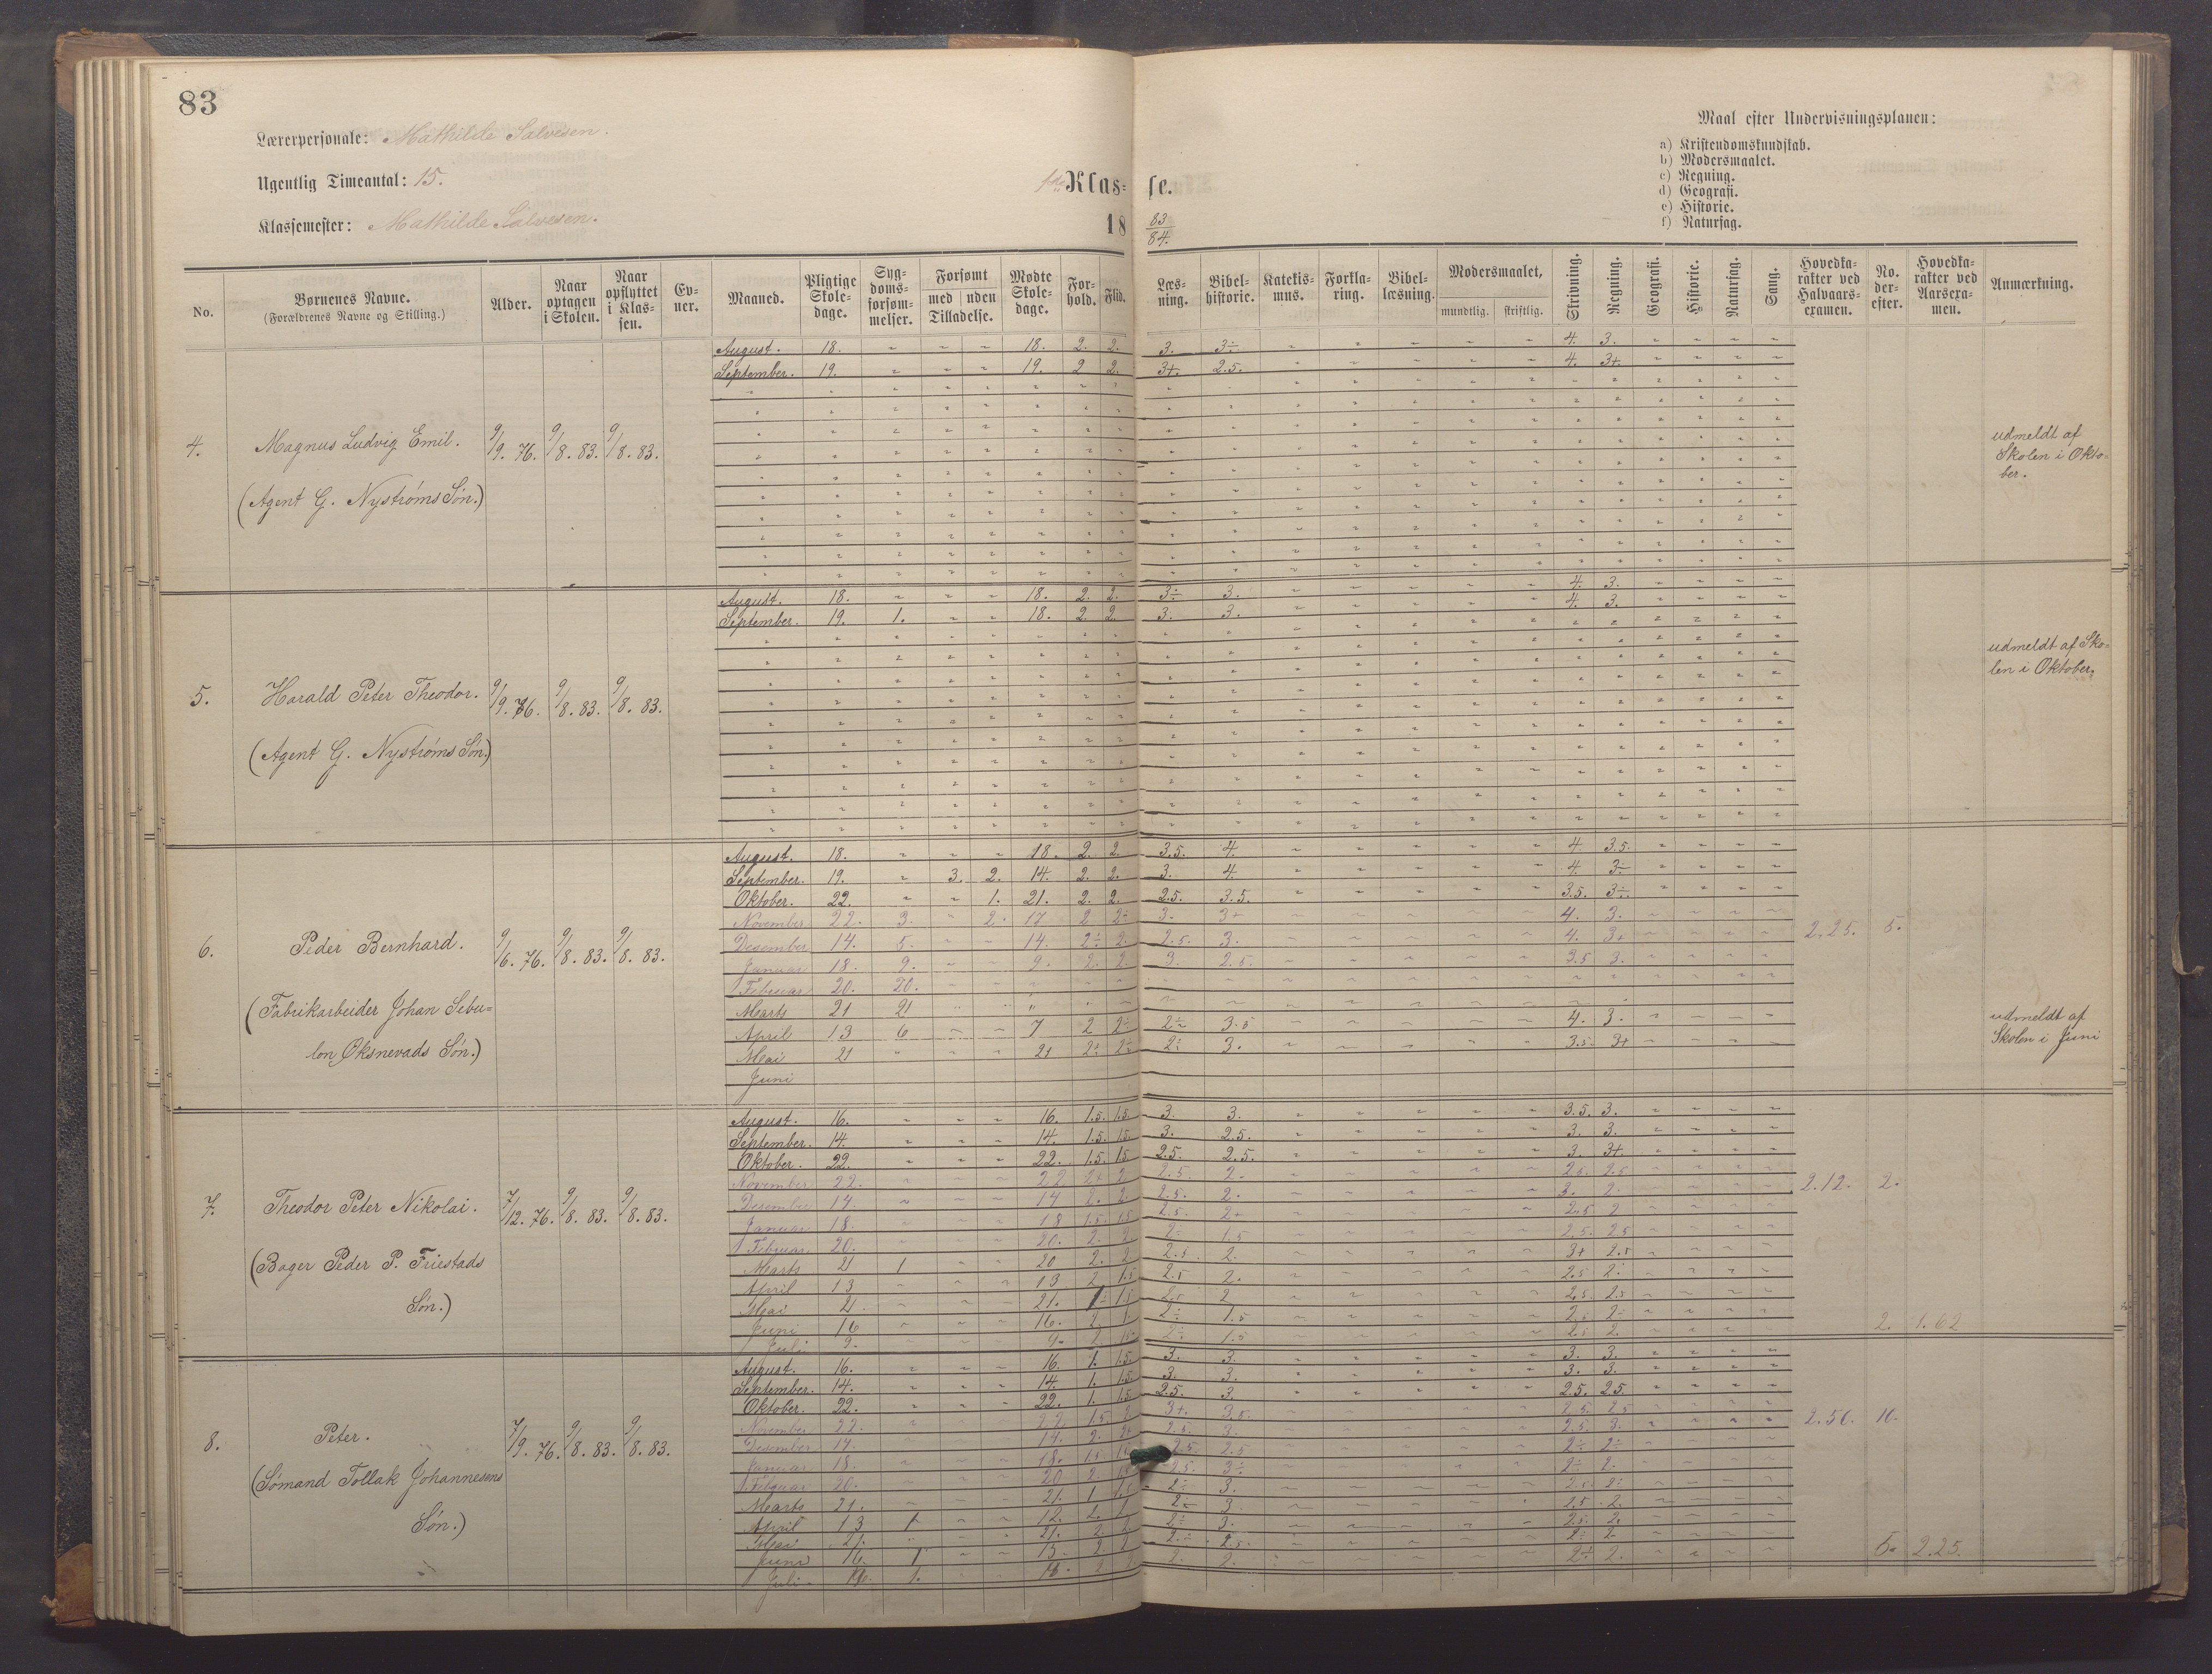 83
Lærerpersonale: Mathilde Salvesen.
Ugentlig Timeantal: 15.
Klassemester: Mathilde Salvesen.
1ste Klas=
18
se.
83
84.
Maal efter Undervisningsplanen:
a) Kristendomskundskab.
b) Modersmaalet.
c) Regning.
d) Geografi.
e) Historie.
f) Naturfag.
No. Børnenes Navne. (Forældrenes Navne og Stilling.) Alder. Naar optagen i Skolen. Naar opflyttet i Klas-sen. Ev-ner. Maaned. Pligtige Skole-dage. Syg-doms-forsøm-melser. Forsømt med uden Tilladelse. Mødte Skole-dage. For-hold. Flid. Læs-ning. Bibel-historie. Katekis-mus. Forkla-ring. Bibel-læsning. Modersmaalet, mundtlig. skriftlig. Skrivning. Regning. Geografi. Historie. Naturfag. Sang. Hovedka-rakter ved Halvaars-examen. No. der-efter. Hovedka-rakter ved Aarsexa-men. Anmærkning.
August. 18. " " " 18. 2. 2. 3. 3÷ " " " " " 4. 3. " " " "
September. 19. " " " 19. 2 2. 3+. 2.5. " " " " " 4. 3+. " " " "
4. Magnus Ludvig Emil. 9/9. 76. 9/8. 83. 9/8. 83.
(Agent G. Nystrøms Søn.)
udmeldt af
Skolen i Okto-
ber.
August. 18. " " " 18. 2. 2. 3÷ 3. " " " " " 4. 3. " " " "
September. 19. 1. " " 18. 2. 2. 3. 3. " " " " " 4. 3. " " " "
5. Harald Peter Theodor. 9/9. 76. 9/8. 83. 9/8. 83.
(Agent G. Nystrøms Søn.)
udmeldt af Sko-
len i Oktober.
August. 18. " " " 18. 2. 2. 3.5. 4. " " " " " 4. 3.5. " " " "
September. 19. " 3. 2. 14. 2. 2. 3. 4. " " " " " 4. 3÷ " " " "
Oktober. 22. " " 1. 21. 2. 2. 2.5. 3.5. " " " " " 3.5. 3÷ " " " "
November 22. 3. " 2. 17 2 2÷ 3. 3+ " " " " " 4. 3. " " " "
Desember 14. 5. " " 14. 2÷ 2. 2.5. 3. " " " " " 4. 3+ " " " "
Januar 18. 9. " " 9. 2. 2. 3. 2.5. " " " " " 3.5 3. " " " "
Februar 20. 20.
Marts 21 21
April 13 6 " " 7 2 2÷ 2÷ 3.5 " " " " " 4. 3. " " " "
Mai 21 " " " 21 2÷ 2÷ 2÷ 3. " " " " " 3.5. 3+ " " " "
Juni
6. Peder Bernhard. 9/6. 76. 9/8. 83. 9/8. 83.
(Fabrikarbeider Johan Sebu=
lon Oksnevads Søn.)
2.25. 5.
udmeldt af
Skolen i Juni
August. 16. " " " 16. 1.5. 1.5. 3. 3. " " " " " 3.5. 3. " " " "
September. 14. " " " 14. 1.5. 1.5. 3. 2.5. " " " " " 3. 3. " " " "
Oktober. 22. " " " 22. 1.5. 1.5 2.5. 2.5. " " " " " 3. 3+ " " " "
November 22. " " " 22 2+ 2 2.5. 2. " " " " " 2.5. 2.5 " " " "
Desember 14. " " " 14 2. 2. 2.5. 2. " " " " " 3. 2. " " " "
Januar 18. " " " 18 1.5. 1.5 2.5. 2+ " " " " " 2.5 2 " " " "
Februar 20. " " " 20. 2. 2 2÷ 1.5 " " " " " 2.5. 2.5 " " " "
Marts 21 1 " " 20 2. 2. 2.5 2. " " " " " 3+ 2.5 " " " "
April 13 " " " 13 2 1.5 2.5 2. " " " " " 2.5 2. " " " "
Mai 21. " " " 21. 2 " " " " " 2.5. 2.5 " " " "
Juni 16 " " " 16. 2÷ 1.5 " " " " " 2.5 2÷ " " " "
Juli 9. " " " 9. 2 1.5 2÷ 1.5 " " " " " 2.5 2. " " " "
7. Theodor Peter Nikolai. 7/12. 76. 9/8. 83. 9/8. 83.
(Bager Peder P. Friestads
Søn.)
2.12. 2.
2. 1.62
August. 16. " " " 16. 1. 1.5. 3. 3. " " " " " 3. 3. " " " "
September. 14. " " " 14. 1. 1.5 3. 3. " " " " " 3. 3. " " " "
Oktober. 22. " " " 22. 1. 1.5. 2.5. 3. " " " " " 2.5. 2.5 " " " "
November 22. " " " 22 1.5. 2 3+. 3.5. " " " " " 2.5. 2.5 " " " "
Desember 14. " " " 14. 2. 2+ 2.5. 3. " " " " " 2.5. 3. " " " "
Januar 18. " " " 18. 1.5. 2.5. 2.5 " " " " " 2÷ 2÷ " " " "
Februar 20. " " " 20 2. 2.5. 3÷ " " " " " 2÷ 2. " " " "
Marts 21. " " " 21. 1 1.5 2÷ 3. " " " " " 2.5. 2÷ " " " "
April 13 1 " " 12. 2. 2÷ 3 " " " " " 2.5 2. " " " "
Mai 21. " " " 21. 2 2 2÷ 3. " " " " " 2.5. 2. " " " "
Juni 16. 1 " " 15. 2 2 2÷ 2.5 " " " " " 2÷ 2 " " " "
Juli 1. " " 2 2. 2. " " " " " 2+ 2. " " " "
8. Peter. 7/9. 76. 9/8. 83. 9/8. 83.
(Sømand Tollak Johannesens
Søn.)
2.50. 10.
5. 2.25.